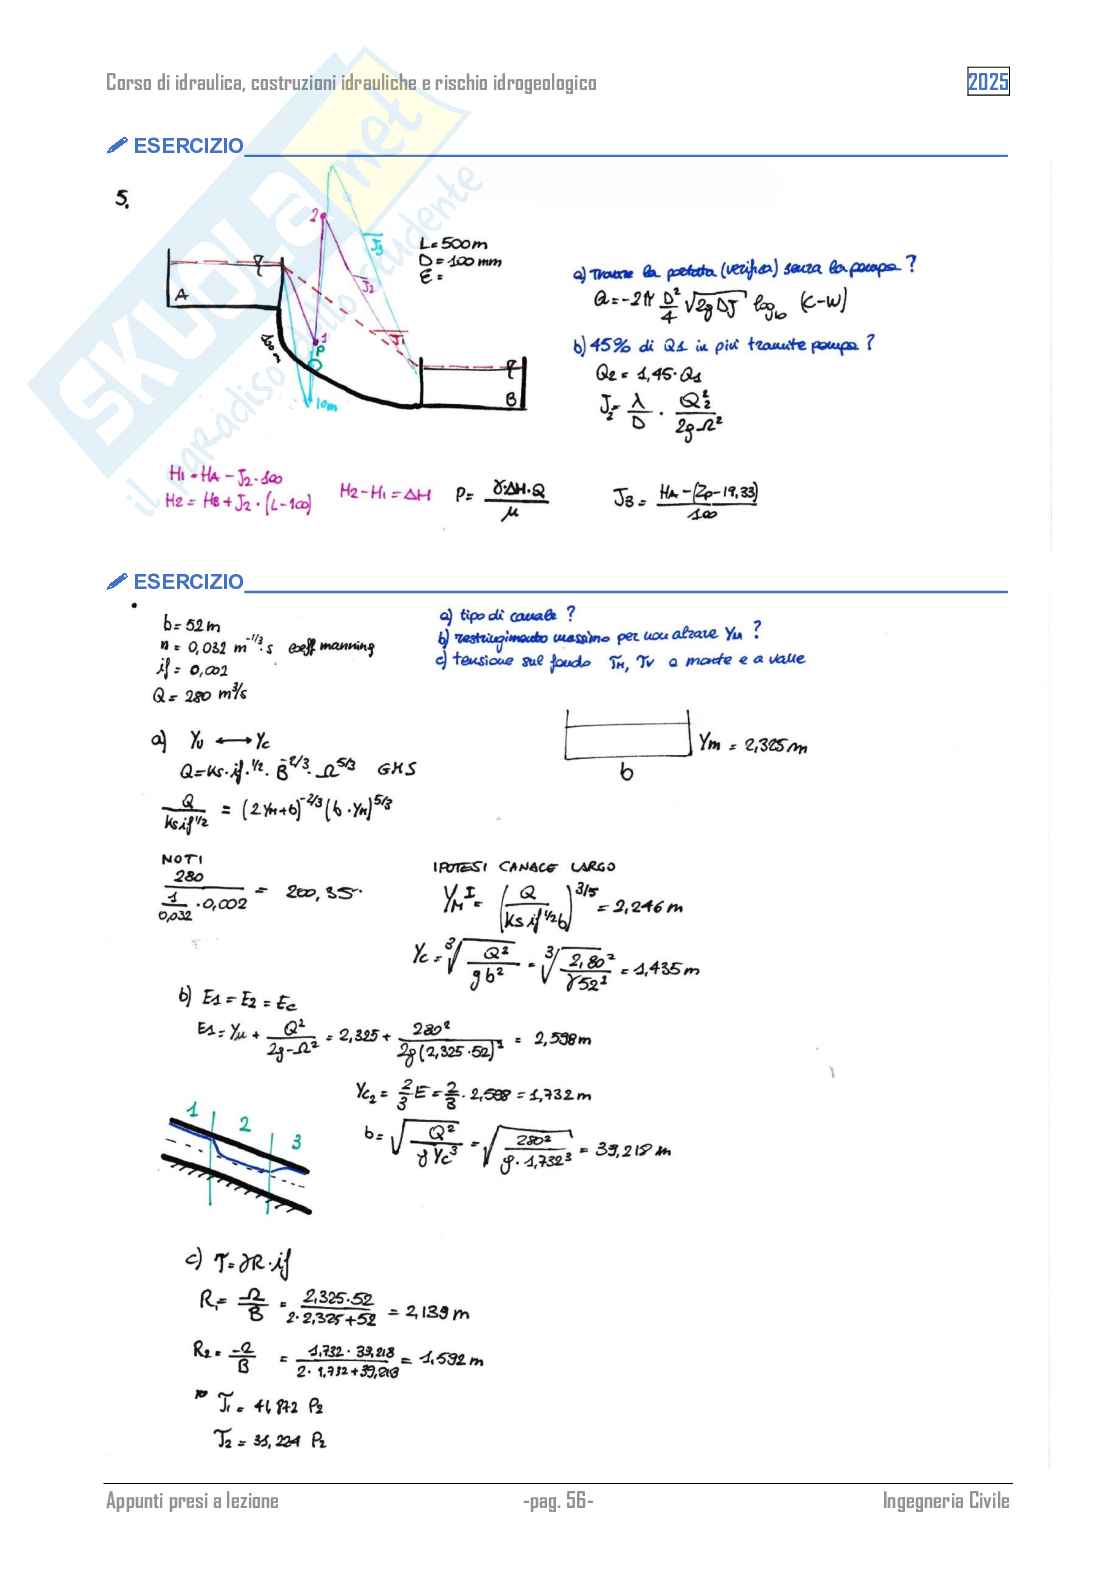 Corso di idraulica, costruzioni idrauliche e rischio idrogeologico
2025
ESERCIZIO
5.
2
L = 500 m
D = 100 mm
ε =
J3
J2
J1
A
1
P
100 m
10m
B
a) Trovare la portata (verifica) senza la pompa ?
Q = -2π D²/4 √2g DJ log10 (C-W)
b) 45% di Q1 in più tramite pompa ?
Q2 = 1,45 · Q1
J2 = λ/D · Q2²/2gΩ²
H1 = HA - J2 · 100
H2 = HB + J2 · (L-100)
H2 - H1 = ΔH
P = γ·ΔH·Q/μ
J3 = HA - (Zp - 19,33)/100
ESERCIZIO
b = 52 m
n = 0,032 m^-1/3 · s coeff manning
if = 0,002
Q = 280 m³/s
a) tipo di canale ?
b) restringimento massimo per non alzare YM ?
c) tensione sul fondo TM, TV a monte e a valle
a) YU ⟷ Yc
Q = Ks · if^1/2 · B^-2/3 · Ω^5/3 GMS
Ym = 2,325 m
b
Q/Ks if^1/2 = (2YM+b)^-2/3 (b·YM)^5/3
NOTI
280/(1/0,032 · 0,002) = 200,35
IPOTESI CANALE LARGO
YM^I = (Q/Ks if^1/2 b)^3/5 = 2,246 m
Yc = ³√Q²/gb² = ³√2,80²/γ52² = 1,435 m
b) E1 = E2 = Ec
E1 = YM + Q²/2g-Ω² = 2,325 + 280²/2g(2,325·52)² = 2,598 m
Yc2 = 2/3 E = 2/3 · 2,598 = 1,732 m
b = √Q²/g Yc³ = √280²/g·1,732³ = 39,218 m
1 2 3
c) T = γR·if
R1 = Ω/B = 2,325·52/2·2,325+52 = 2,139 m
R2 = Ω/B = 1,732 · 39,218/2·1,732+39,218 = 1,592 m
T1 = 41,872 Pa
T2 = 31,224 Pa
Appunti presi a lezione
-pag. 56-
Ingegneria Civile
SKUOLA.net
il paradiso dello studente